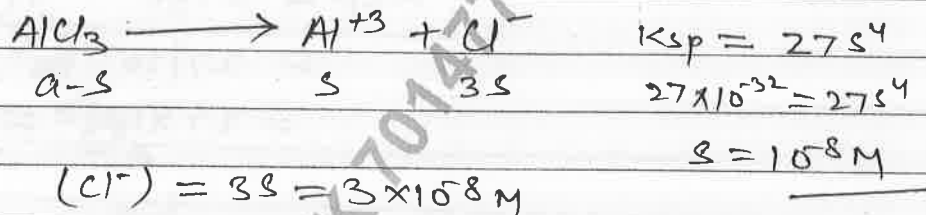 AlCl3 ⟶ Al+3 + Cl- Ksp = 27 s4
a-s s 3s 27×10-32 = 27s4
s = 10-8 M
(Cl-) = 3s = 3×10-8 M